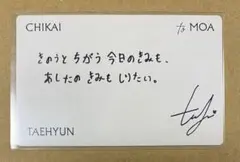 CHIKAI to MOA
きのうと ちがう 今日のきみも、
あしたの きみも しりたい。
TAEHYUN